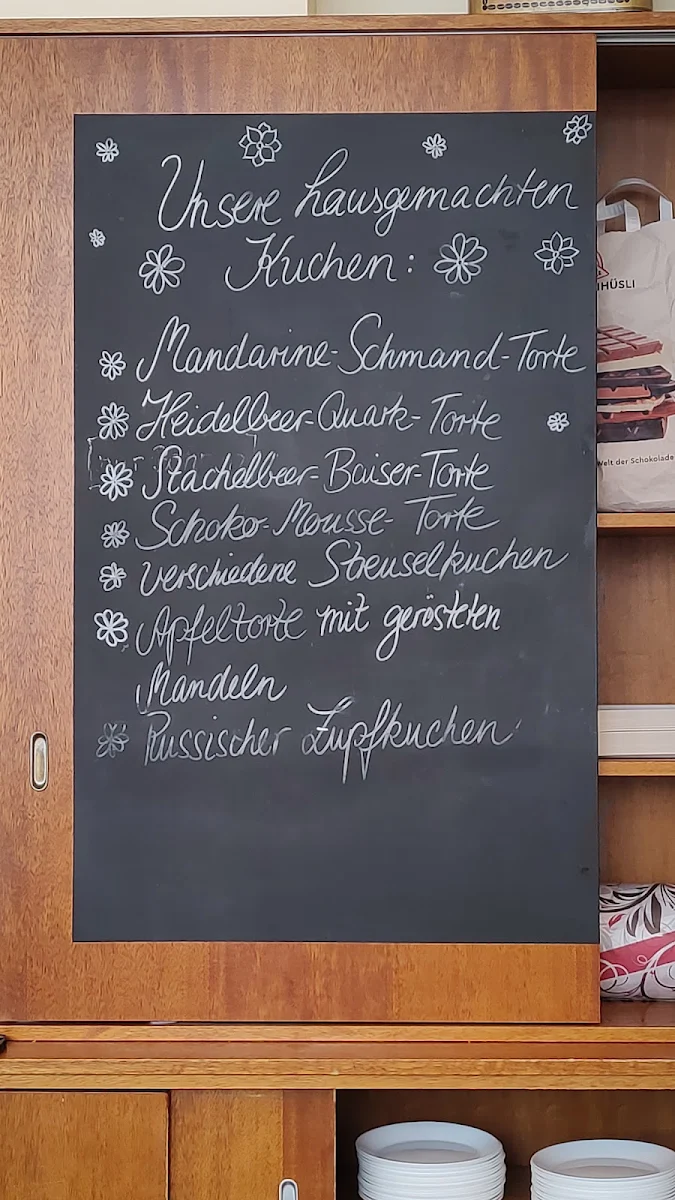 Unsere hausgemachten
Kuchen:
Mandarine-Schmand-Torte
Heidelbeer-Quark-Torte
Stachelbeer-Baiser-Torte
Schoko-Mousse-Torte
verschiedene Streuselkuchen
Apfeltorte mit gerösteten
Mandeln
Russischer Zupfkuchen
HÜSLI
Welt der Schokolade